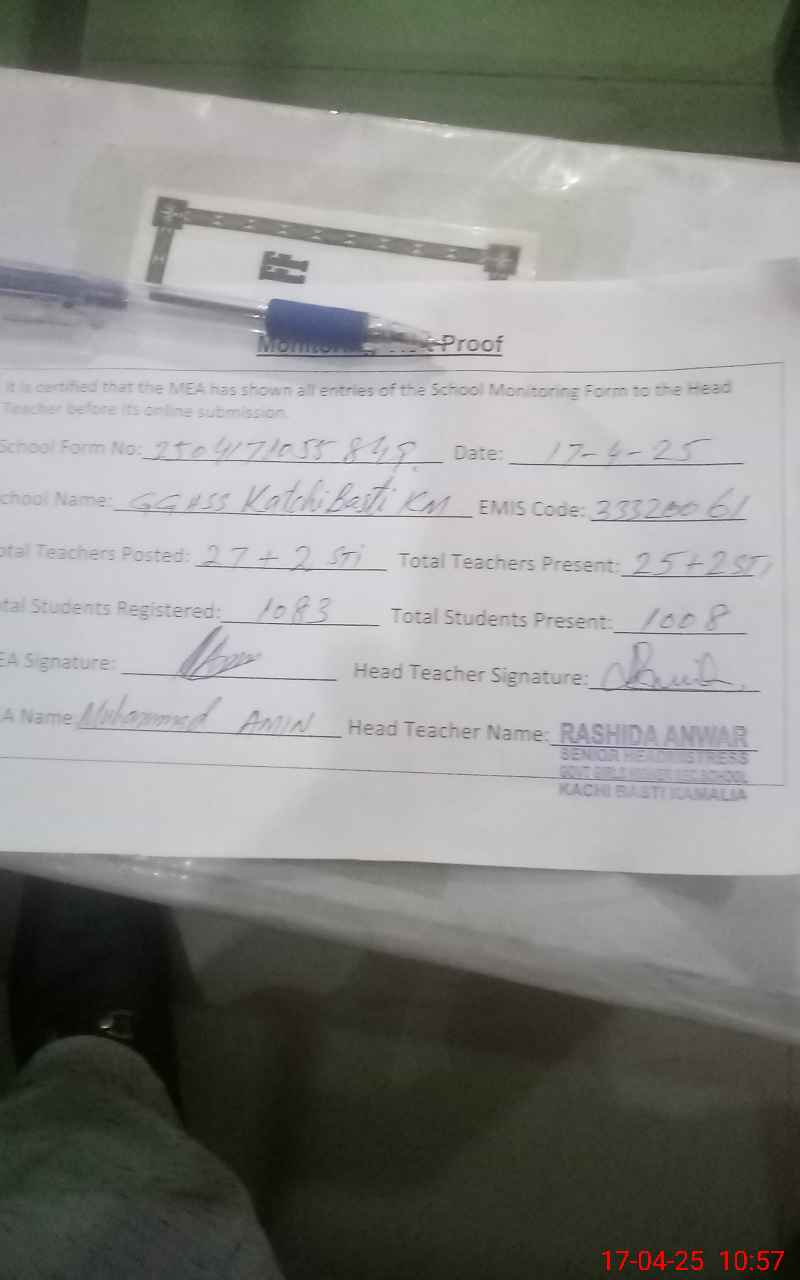 Monitoring Visit Proof
It is certified that the MEA has shown all entries of the School Monitoring Form to the Head
Teacher before its online submission.
School Form No: 2504171055849 Date: 17-4-25
chool Name: GGHSS Katchi Basti KM EMIS Code: 33320061
otal Teachers Posted: 27 + 2 STi Total Teachers Present: 25+2 STI
tal Students Registered: 1083 Total Students Present: 1008
EA Signature: Head Teacher Signature:
A Name: Muhammad AMIN Head Teacher Name: RASHIDA ANWAR
SENIOR HEADMISTRESS
GOVT GIRLS HIGHER SEC SCHOOL
KACHI BASTI KAMALIA
17-04-25 10:57